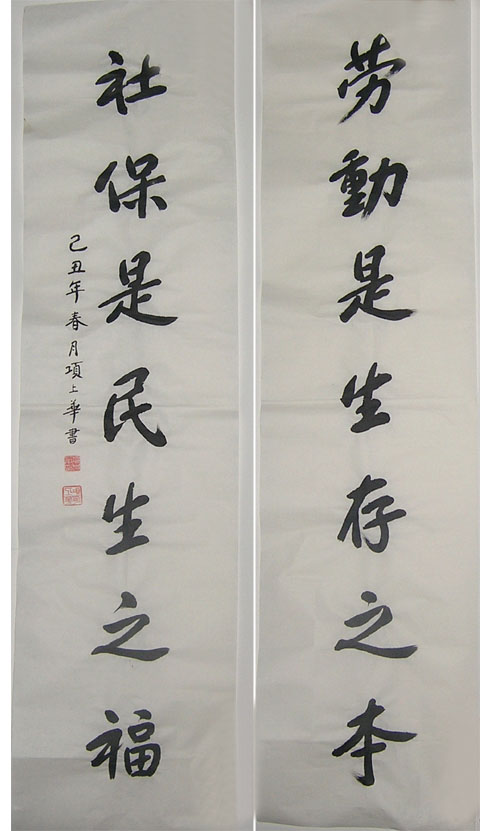 劳動是生存之本
社保是民生之福
己丑年春月項上華書